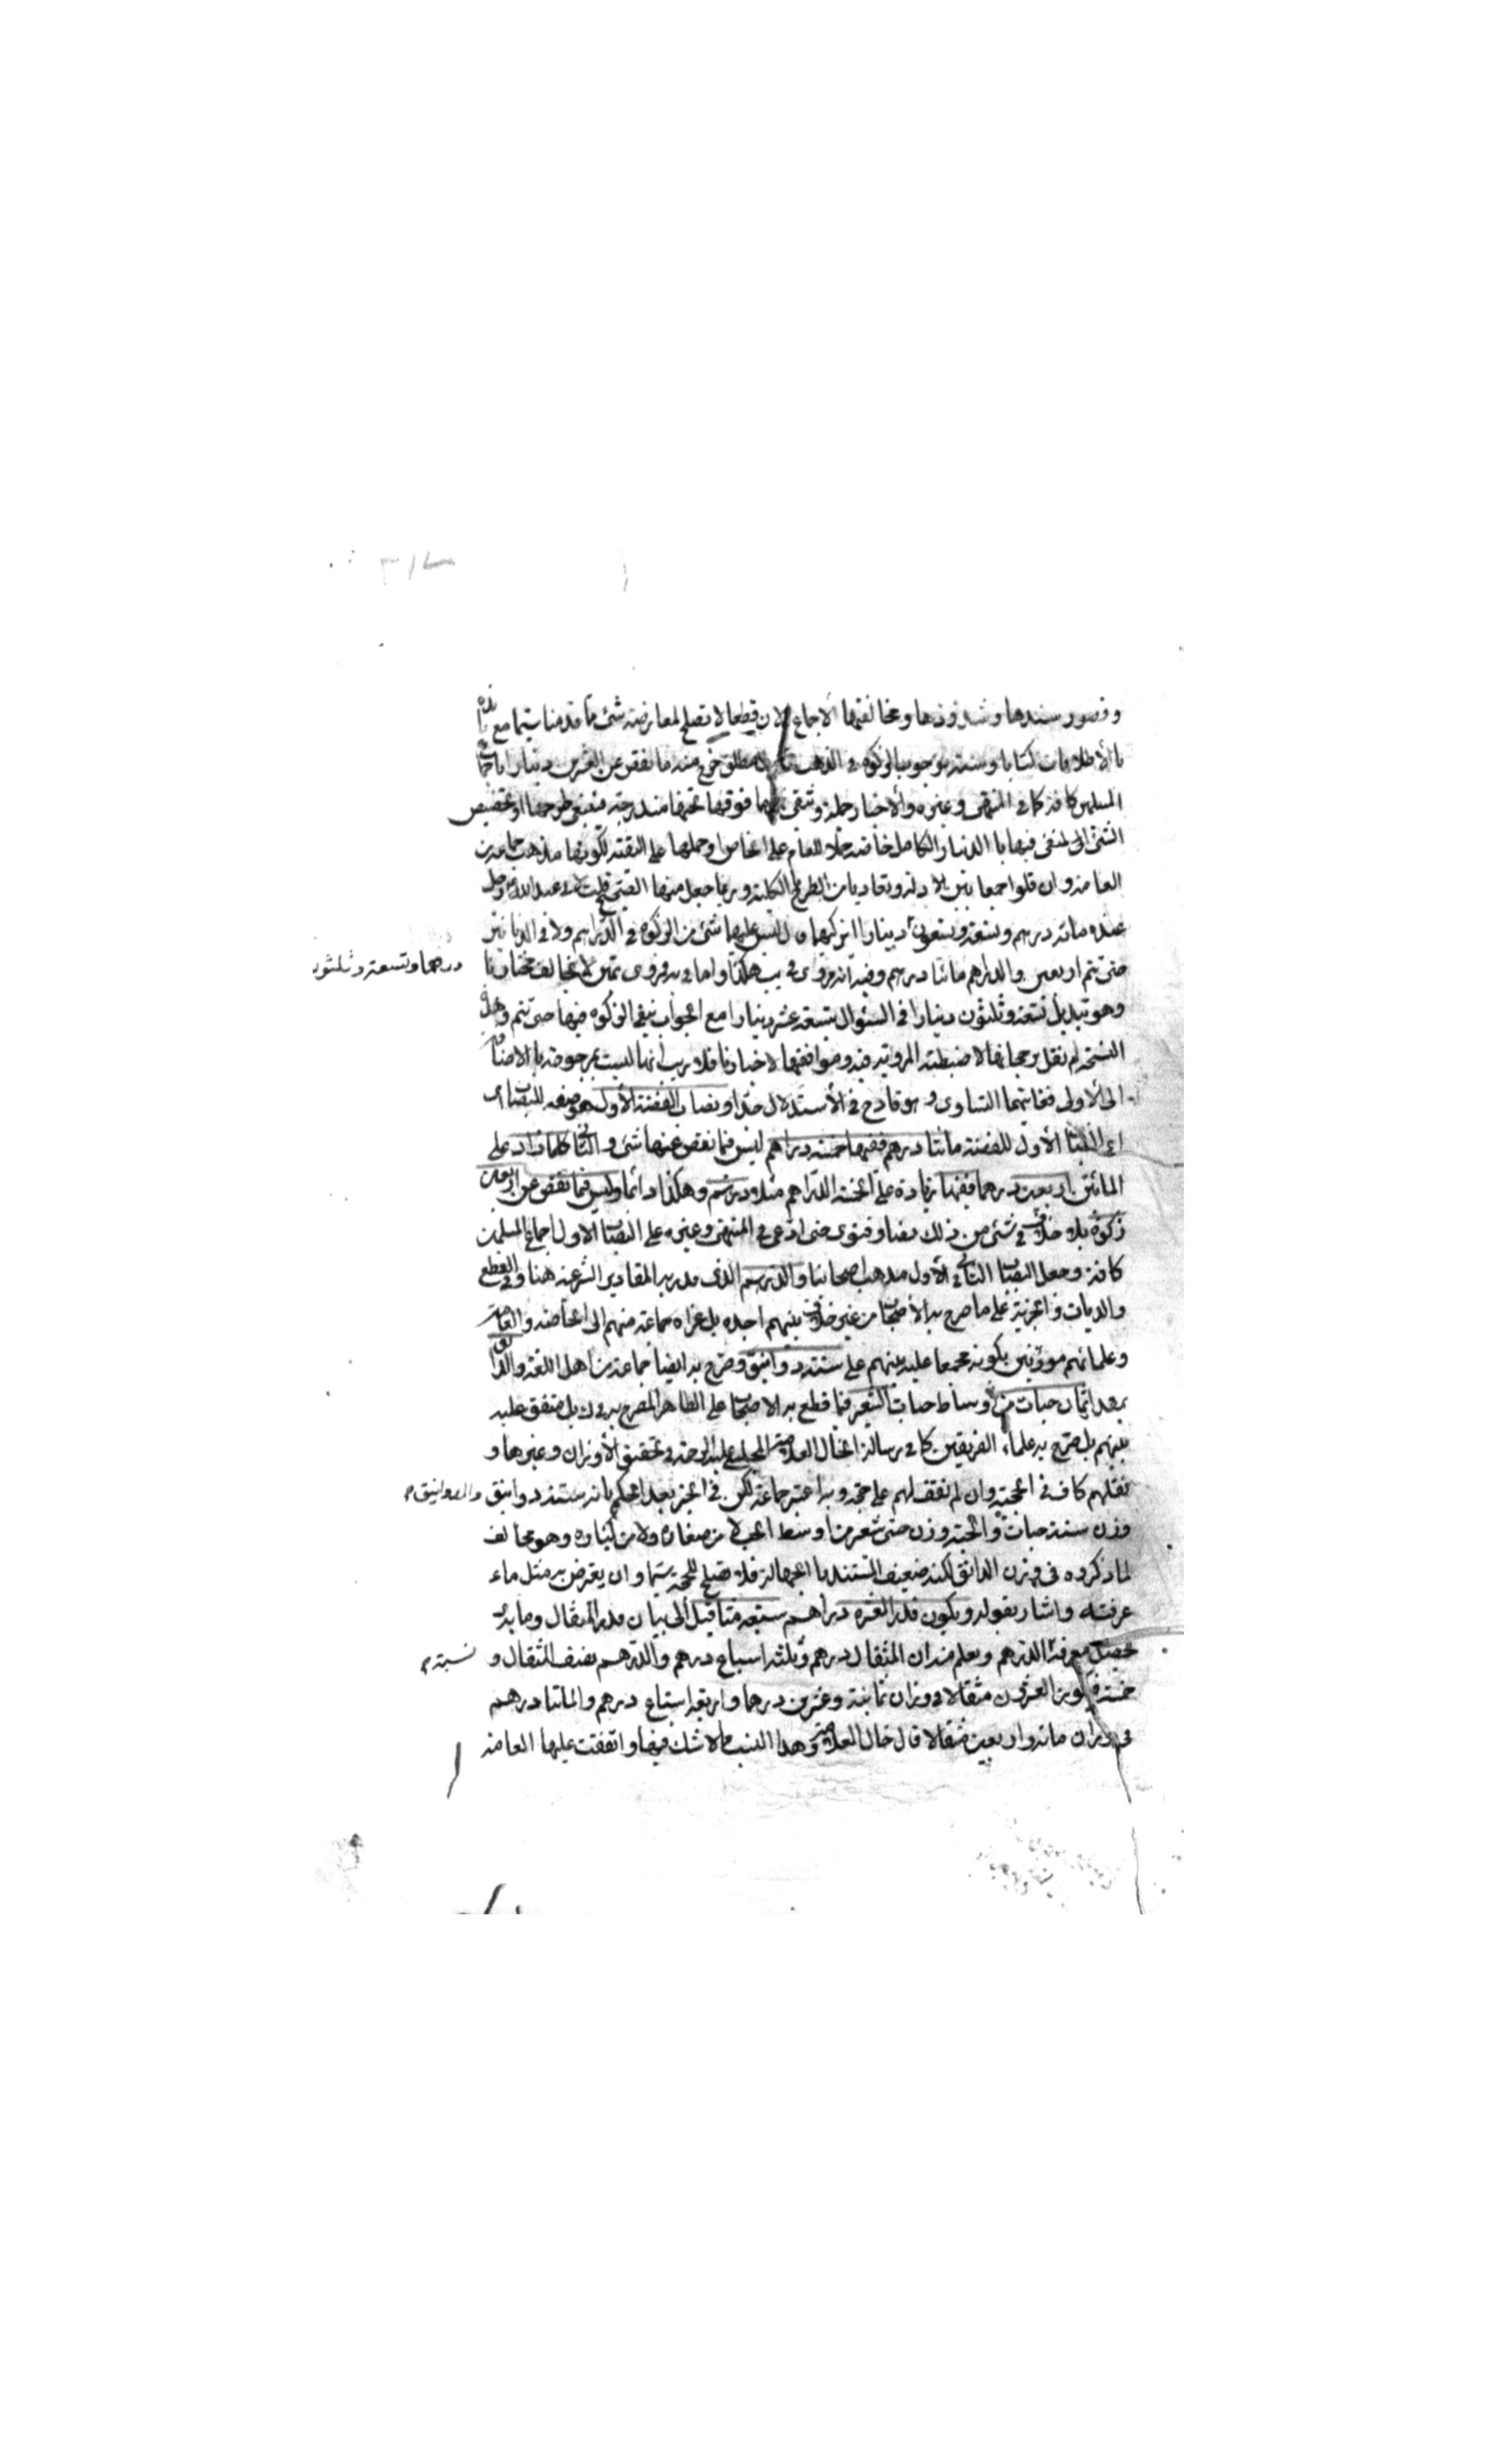 وقصور سندها وشذوذها ومخالفتها الاجماع الان قطعا لا تصلح لمعارضة شئ مما قدمنا سيما مع
بالأطلاقات كتابا وسنة بوجوب الزكوة في الذهب مطلق خرج منه ما نقص عن العشرين دينارا باجماع
المسلمين كافة كما في المنتهى وغيره والاخبار جملة وتبقى فوقها تحتها مندرجة فينبغي طرحها او تخصيص
الشئ المنفي فيها بالدينار الكامل خاصة حملا للعام على الخاص او حملها على التقية لكونها مذهب جماعة من
العامة وان قلوا جمعا بين الادلة وتفاديا من الطرح بالكلية وربما جعل منها الصحيح قلت لابي عبدالله ع رجل
عنده مائة درهم وتسعة وتسعون دينارا ايزكيها قال ليس عليه شئ من الزكوة في الدراهم ولا في الدنانير
درهما وتسعة وثلثون
حتى تتم اربعين والدراهم مائتا درهم وفيه انه مروى في يب هكذا واما في يه فروى بمتن لا يخالف مختارنا
وهو تبديل تسعة وثلثون دينارا في السؤال بتسعة عشر دينارا مع الجواب بنفي الزكوة فيها حتى تتم وهذه
النسخة ان لم نقل برجحانها لاضبطية المروية فيه وموافقتها لاخبارنا فلا ريب انها ليست بمرجوحة بالاضافة
الى الأولى فغايتهما التساوي وهو قادح في الأستدلال جدا ونصاب الفضة الأول
اي النصاب الأول للفضة مائتا درهم ففيها خمسة دراهم ليس فيما نقص عنها شئ والثاني كلما زاد على
المائتين اربعين درهما ففيها زيادة على الخمسة الدراهم مثلا درهم وهكذا دائما وليس فيما نقص عن اربعين
زكوة بلا خلاف في شئ من ذلك نصا وفتوى حتى ادعى في المنتهى وغيره على النصاب الاول اجماع المسلمين
كافة وجعل النصاب الثاني في الأول مذهب اصحابنا والدرهم الذي قدر به المقادير الشرعية هنا وفي القطع
والديات والجزية على ما صرح به الأصحاب من غير خلاف بينهم اجده بل عزاه جماعة منهم الى الخاصة والعامة
وعلمائهم موذنين بكونه مجمعا عليه بينهم على ستة دوانيق وصرح به ايضا جماعة من اهل اللغة والدانق
ثمان حبات من اوساط حبات الشعير فيما قطع به الاصحاب على الظاهر المصرح به بل متفق عليه
بينهم بل صرح به علماء الفريقين كما في رسالة الخال العلامة المجلسي عليه الرحمة في تحقيق الأوزان وغيرها و
نقلهم كاف في الحجة وان لم نقف لهم على حجة وبه اعتبر جماعة لكن في الخبر بعد الحكم بانه ستة دوانيق والدوانيق
وزن ستة حبات والحبة وزن حبتى شعير من اوسط الحب لا من صغاره ولا من كباره وهو مخالف
لما ذكروه في وزن الدانق لكنه ضعيف السند بالجهالة فلا يصلح للحجية سيما وان يعترض به مثل ما
عرفته واشار بقوله ويكون قدر العشرة دراهم سبعة مثاقيل الى بيان قدر المثقال وما به
تحصيل معرفة الدرهم ويعلم منه ان المثقال درهم وثلثة اسباع درهم والدرهم نصف المثقال و
نسبته
خمسه العشرون مثقالا في وزان ثمانية وعشرين درهما واربعة اسباع درهم والمائتا درهم
في وزان مائة واربعين مثقالا قال خال العلامة وهذا النسب مما لا شك فيها واتفقت عليها العامة